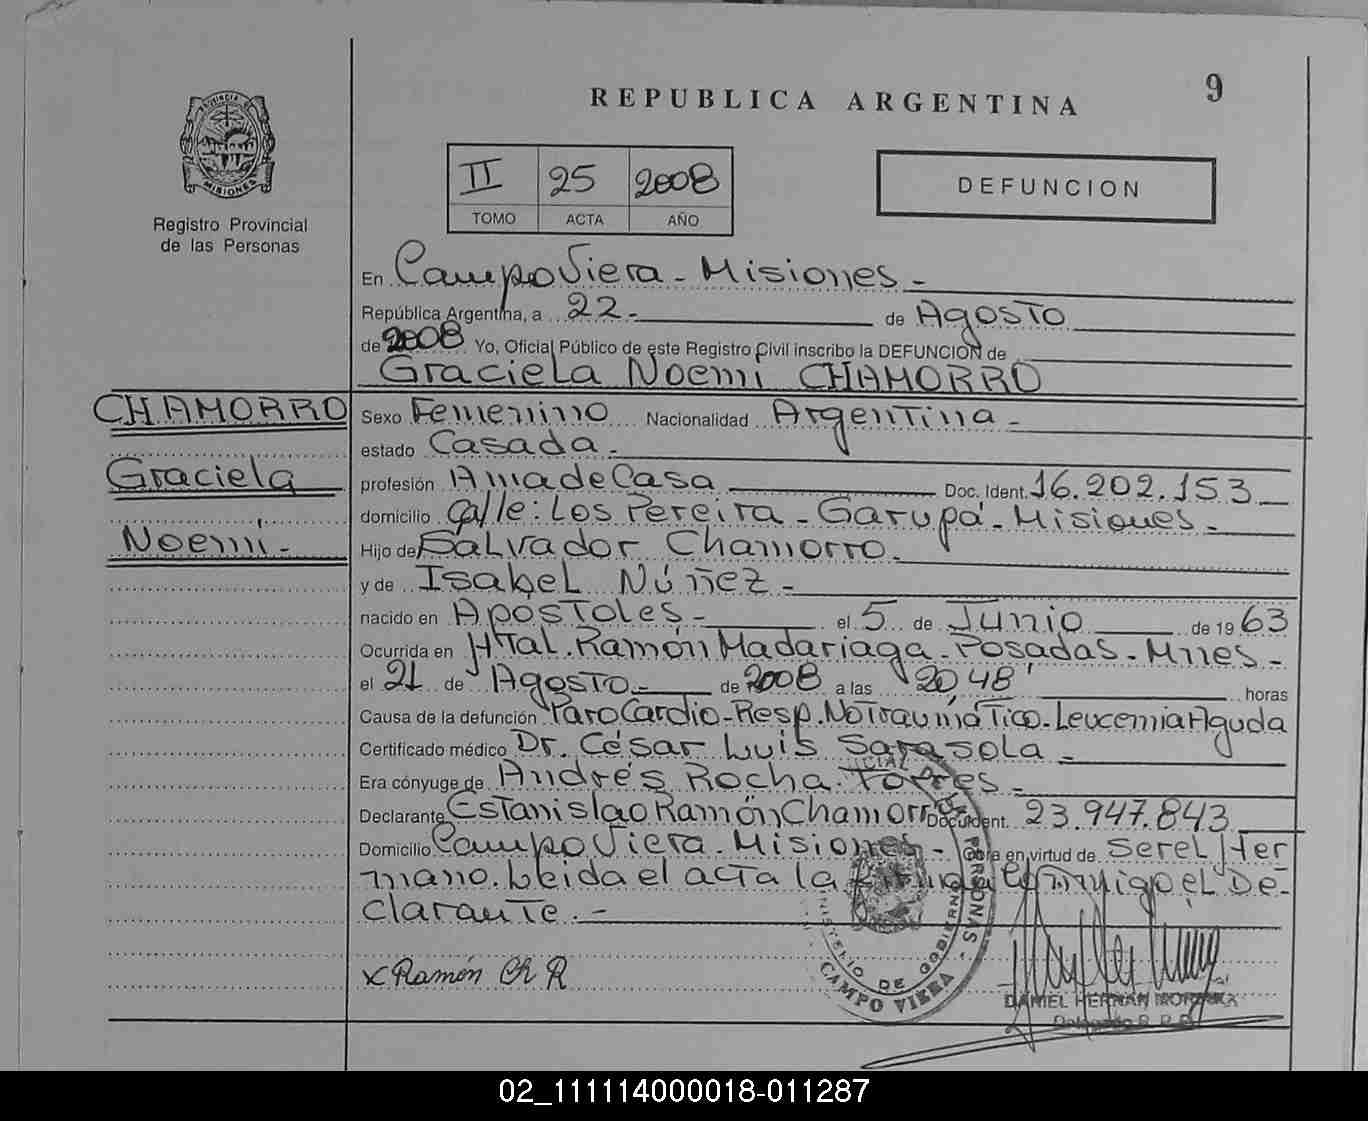 REPUBLICA ARGENTINA
9
PROVINCIA DE
MISIONES
Registro Provincial
de las Personas
II 25 2008
TOMO ACTA AÑO
DEFUNCION
En Campo Viera - Misiones -
República Argentina, a 22 - de Agosto
de 2008 Yo, Oficial Público de este Registro Civil inscribo la DEFUNCION de
Graciela Noemí CHAMORRO
CHAMORRO
Graciela
Noemí -
Sexo Femenino Nacionalidad Argentina -
estado Casada -
profesión Ama de Casa Doc. Ident. 16.202.153
domicilio Calle: Los Pereira - Garupá - Misiones -
Hijo de Salvador Chamorro -
y de Isabel Núñez -
nacido en Apostoles - el 5 de Junio de 1963
Ocurrida en Htal. Ramón Madariaga - Posadas - Mnes -
el 21 de Agosto - de 2008 a las 20,48' horas
Causa de la defunción Paro Cardio - Resp. No Traumático - Leucemia Aguda
Certificado médico Dr. César Luis Sarasola -
Era cónyuge de Andrés Rocha Torres -
Declarante Estanislao Ramón Chamorro Doc. Ident. 23.947.843
Domicilio Campo Viera - Misiones - Obra en virtud de ser el Her
mano. Leida el acta la conmigo el De-
clarante . -
x Ramón Ch R
MINISTERIO DE GOBIERNO
PERSONAS
CAMPO VIERA
DANIEL HERNAN
02_111114000018-011287